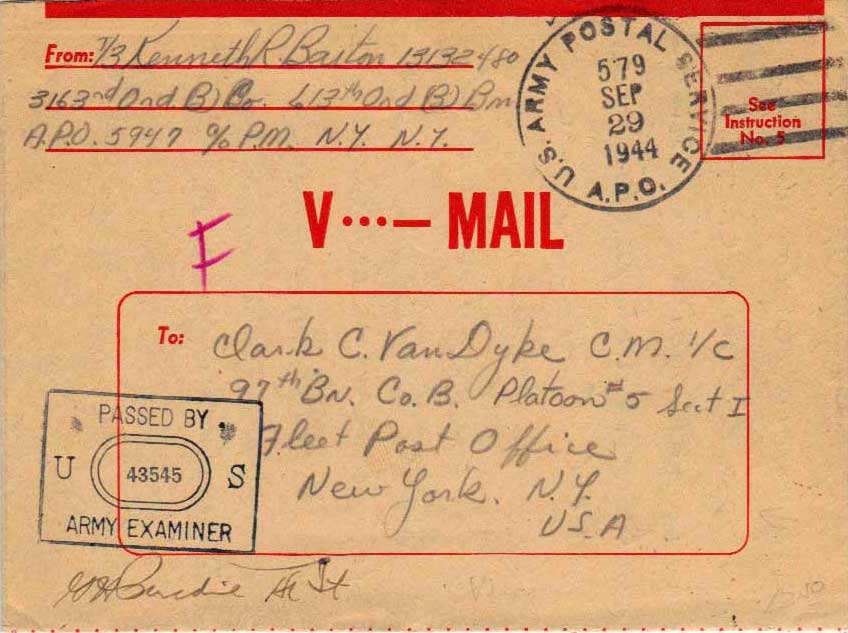 From: T/3 Kenneth R. Baiton 13132480
3163rd Ord (B) Co. 613th Ord (B) Bn
A.P.O. 5947 c/o P.M. N.Y. N.Y.
U.S. ARMY POSTAL SERVICE
579
SEP
29
1944
A.P.O.
See
Instruction
No. 5
V···— MAIL
F
To: Clark C. Van Dyke C.M. 1/c
97th Bn. Co. B. Platoon #5 Sect I
Fleet Post Office
New York. N.Y.
U.S.A
PASSED BY
U 43545 S
ARMY EXAMINER